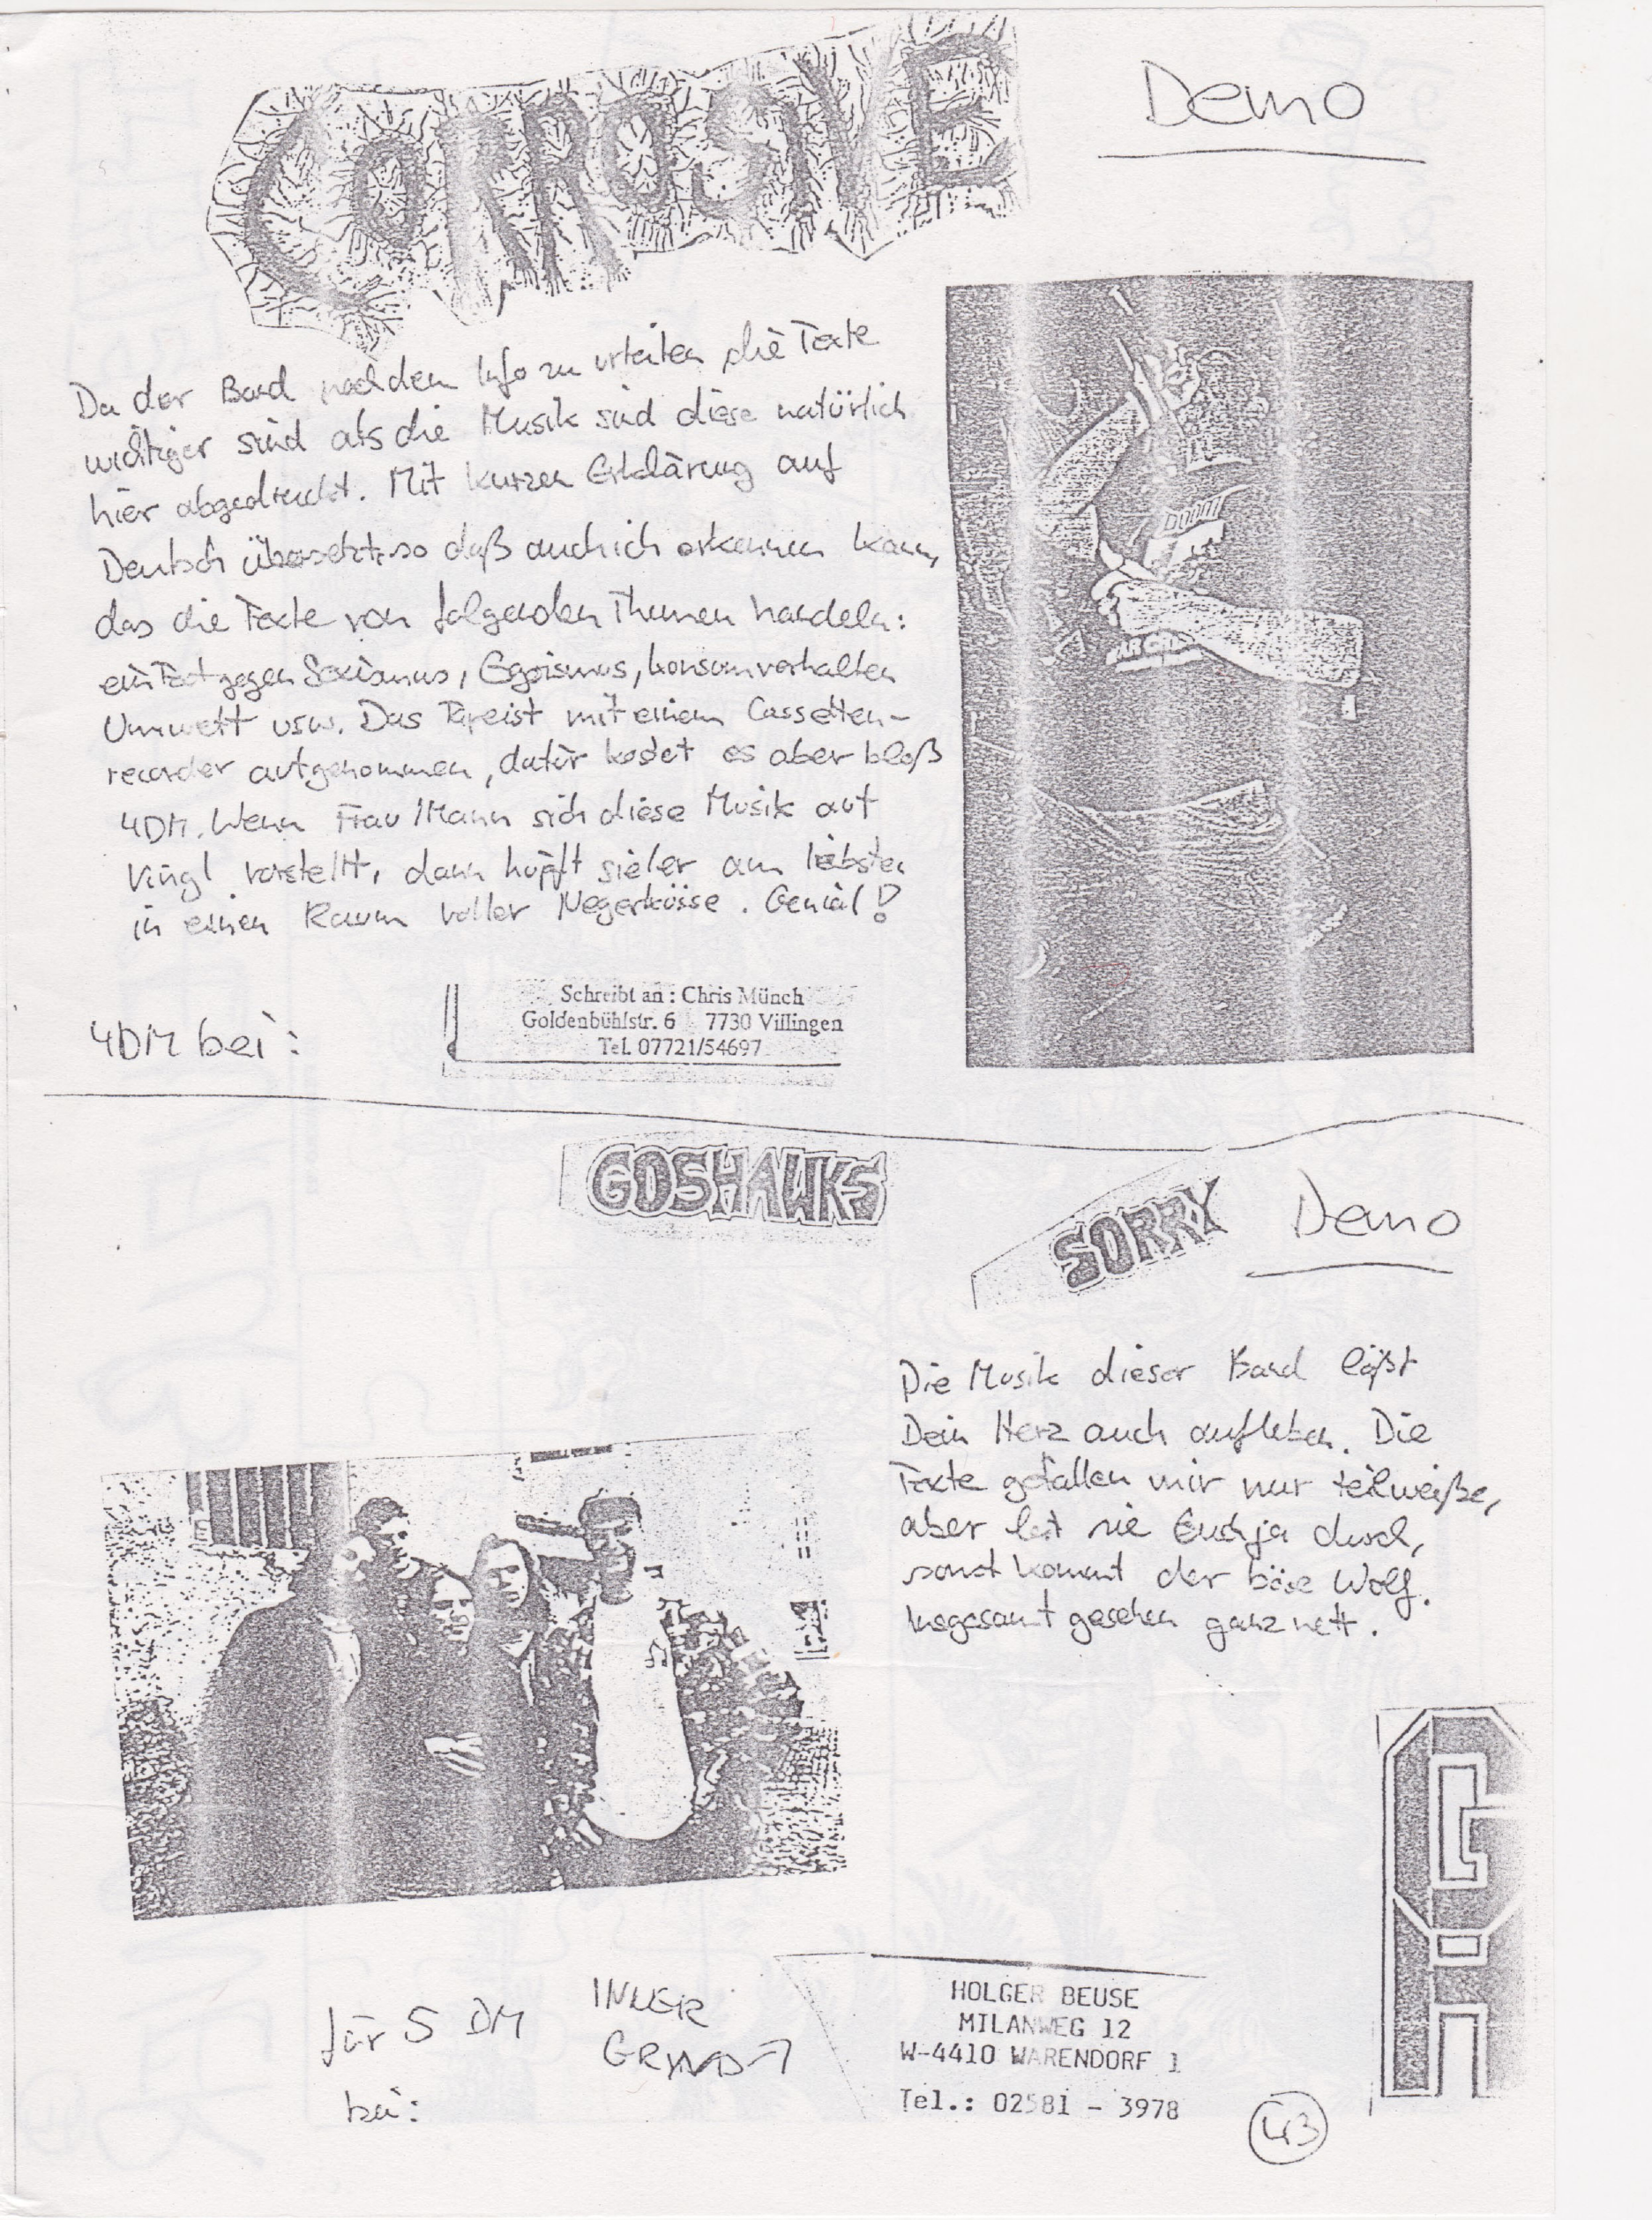 CORROSIVE
Demo
Da der Band nach dem Info zu urteilen die Texte
wichtiger sind als die Musik sind diese natürlich
hier abgedruckt. Mit kurzen Erklärung auf
Deutsch übersetzt so daß auch ich erkennen kann,
das die Texte von folgenden Themen handeln:
ein Text gegen Sexismus, Egoismus, konsumverhalten
Umwelt usw. Das Tape ist mit einem Cassetten-
recorder aufgenommen, dafür kostet es aber bloß
4DM. Wenn Frau/Mann sich diese Musik auf
Vingl vorstellt, dann hüpft sie/er am liebsten
in einen Raum voller Negerküsse. Genial!
4DM bei:
Schreibt an : Chris Münch
Goldenbühlstr. 6 7730 Villingen
Tel. 07721/54697
GOSHAWKS
SORRY
Demo
Die Musik dieser Band läßt
Dein Herz auch aufleben. Die
Texte gefallen mir nur teilweiße,
aber lest sie Euch ja durch,
sonst kommt der böse Wolf.
Insgesamt gesehen ganz nett.
für 5 DM
bei:
INNER
HOLGER BEUSE
MILANWEG 12
W-4410 WARENDORF 1
Tel.: 02581 - 3978
43